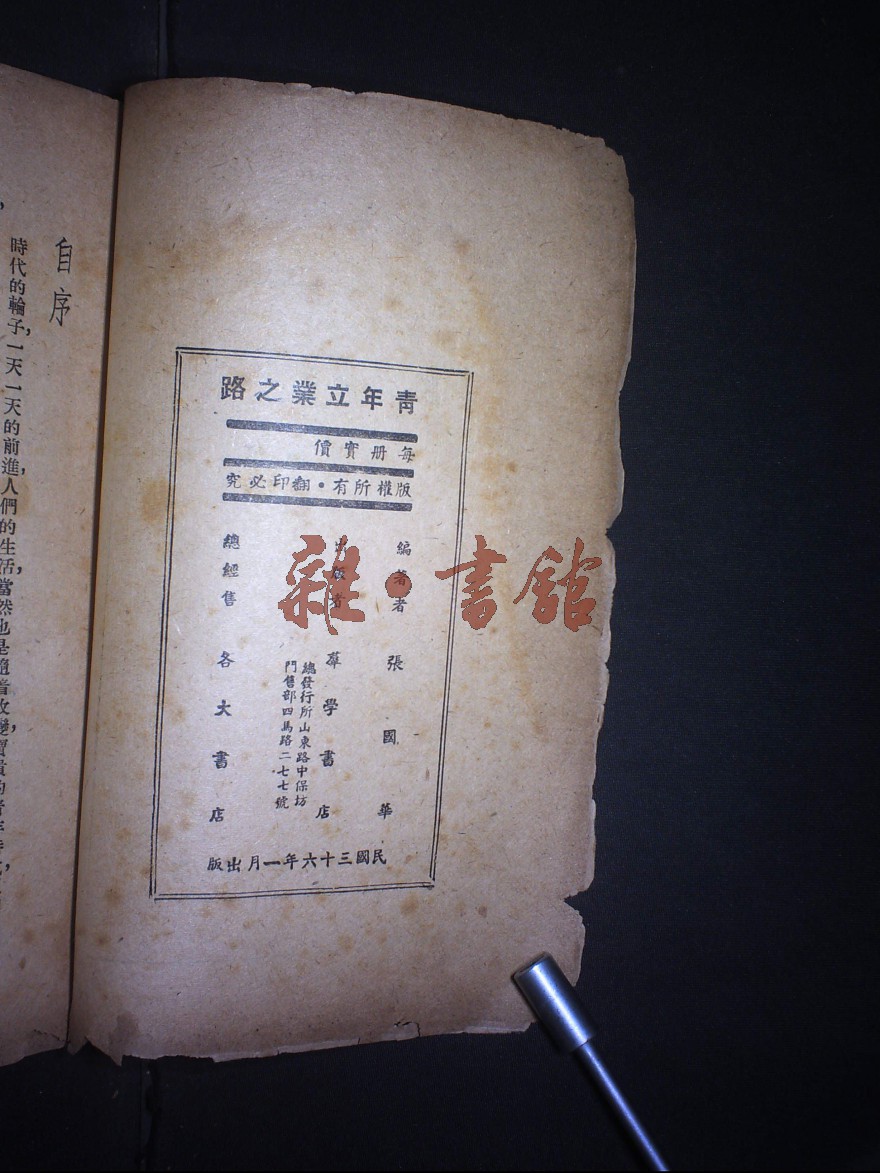 青年立業之路
每册實價
版權所有・翻印必究
編著者 張國華
出版者 羣學書店
總發行所山東路中保坊
門售部四馬路二七七號
總經售 各大書店
民國三十六年一月出版
雜・書館
自序
時代的輪子，一天一天的前進，人們的生活，當然也是隨着改變，寶貴的青年